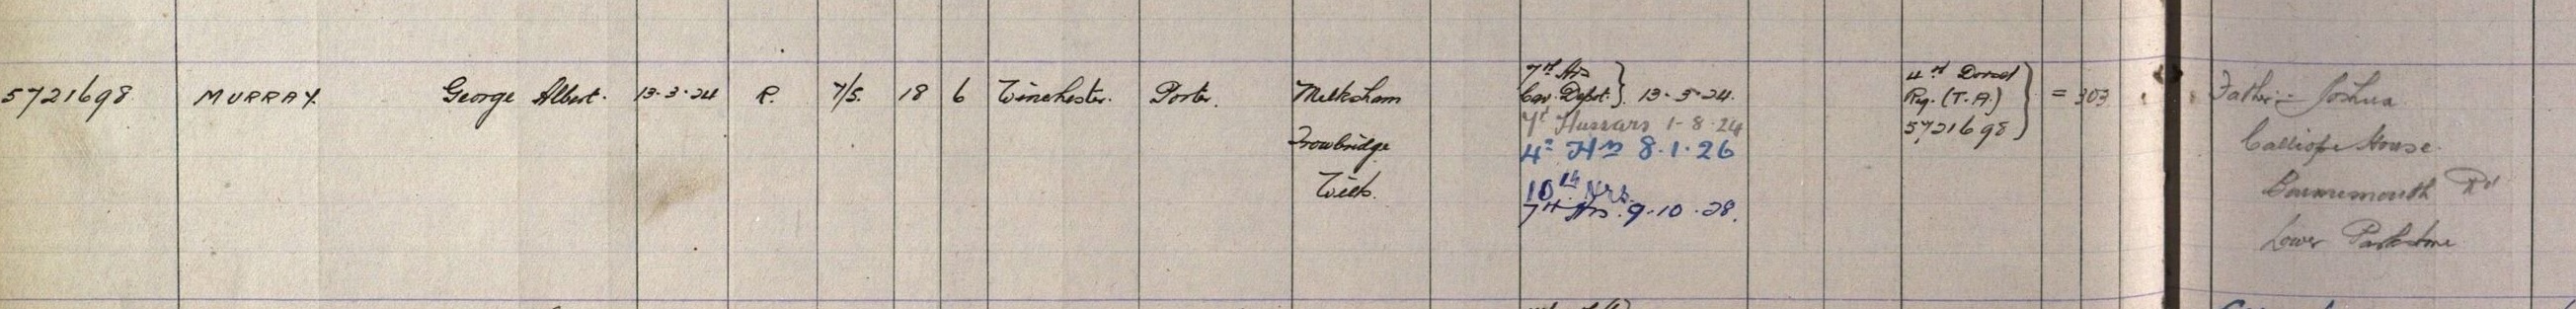 5721698 MURRAY. George Albert. 13-3-24 R. 7/5. 18 6 Winchester. Porter. Melksham
Trowbridge
Wilts.
7th Hrs
Cav. Depot. } 13-3-24.
7th Hussars 1-8-24
4th Hrs 8.1.26
10th Hrs.
7th Hrs. 9-10-28.
4th Dorset
Rg. (T.A.)
5721698 } = 303
Father:- Joshua
Calliope House.
Bournemouth Rd
Lower Parkstone